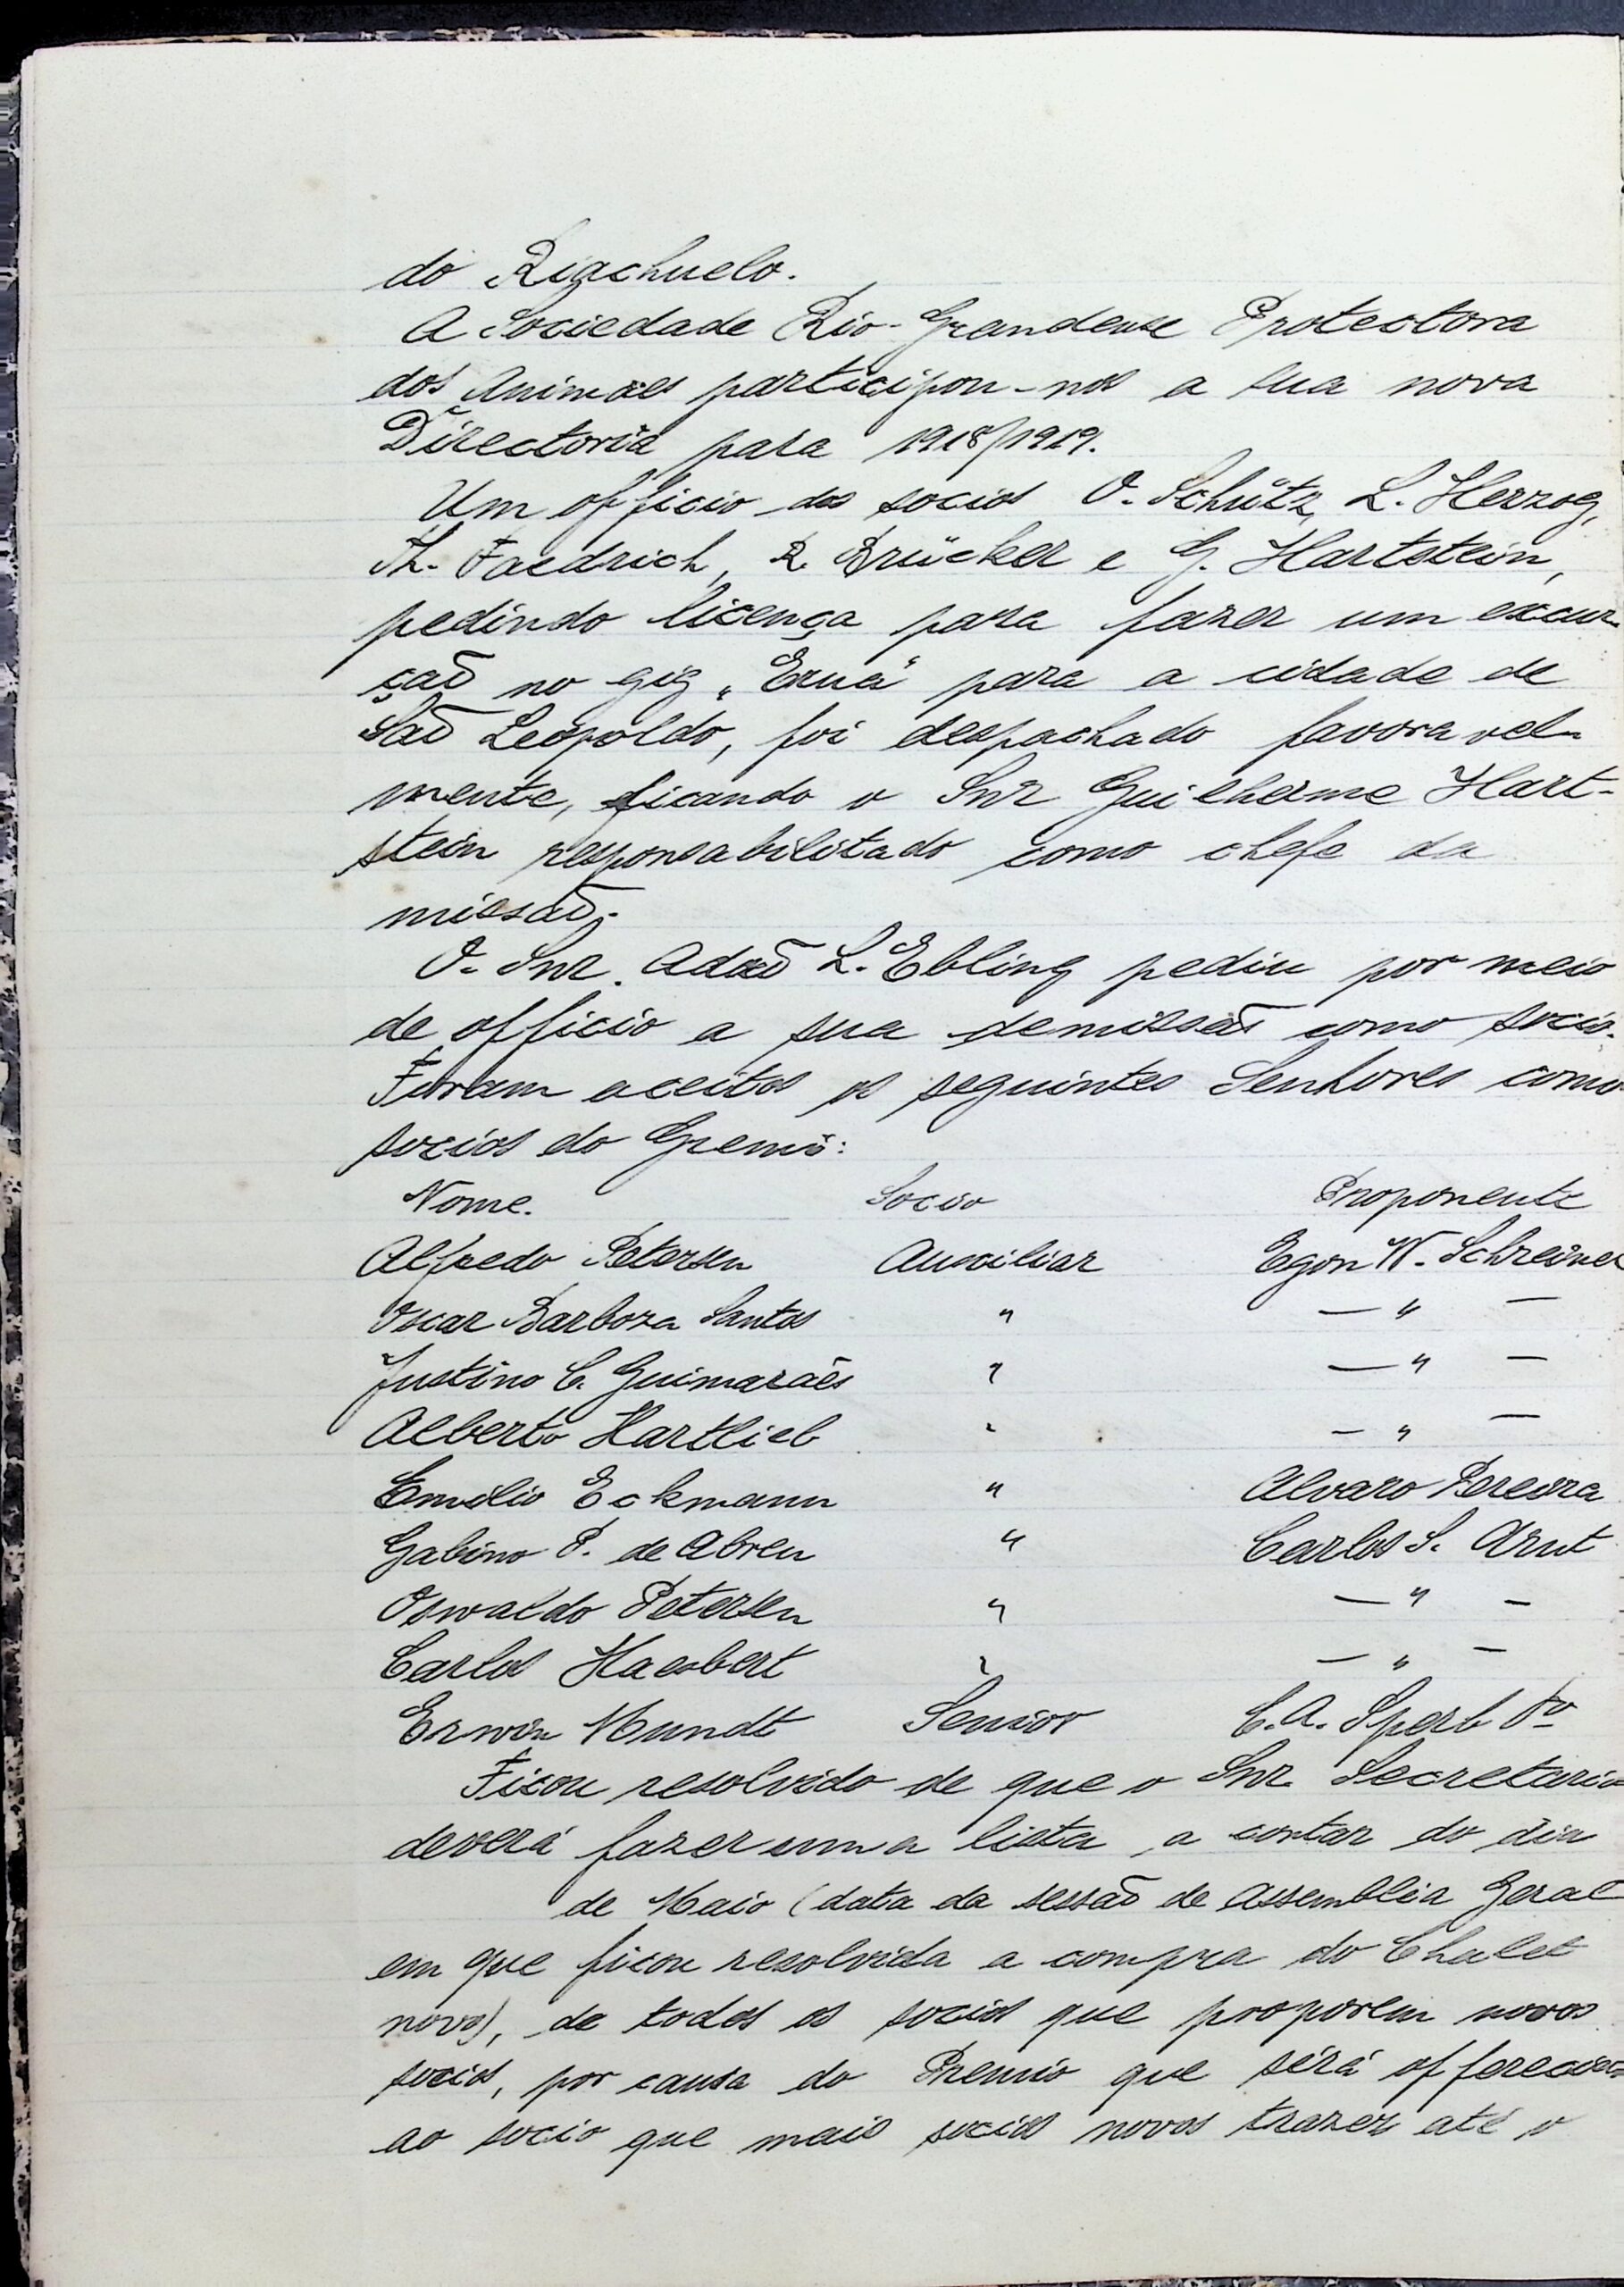 do Riachuelo.
A Sociedade Rio-Grandense Protectora
dos Animaes participou-nos a sua nova
Directoria para 1918/1919.
Um officio dos socios O. Schütz, L. Herzog,
Th. Faedrich, R. Brücker e G. Hartstein,
pedindo licença para fazer um excur-
çaõ no gig „Erna" para a cidade de
Saõ Leopoldo, foi despachado favoravel-
mente, ficando o Snr Guilherme Hart-
stein responsabilitado como chefe da
missaõ.
O. Snr. Adaõ L. Ebling pediu por meio
de officio a sua demissaõ como socio.
Foram aceitos os seguintes Senhores como
socios do Gremio:
Nome. Socio Proponente
Alfredo Petersen Auxiliar Egon W. Schreiner
Oscar Barboza Santos " — " —
Justino C. Guimarães " — " —
Alberto Hartlieb " — " —
Emilio Eckmann " Alvaro Pereira
Gabino P. de Abreu " Carlos S. Arnt
Oswaldo Petersen " — " —
Carlos Haesbert " — " —
Erwin Mundt Senior C. A. Sperb Fo
Ficou resolvido de que o Snr. Secretario
deverá fazer uma lista, a contar do dia
de Maio (data da sessaõ de Assemblia Geral
em que ficou resolvida a compra do Chalet
novo), de todos os socios que proporem novos
socios, por causa do Premio que será offerecido
ao socio que mais socios novos trazer até o